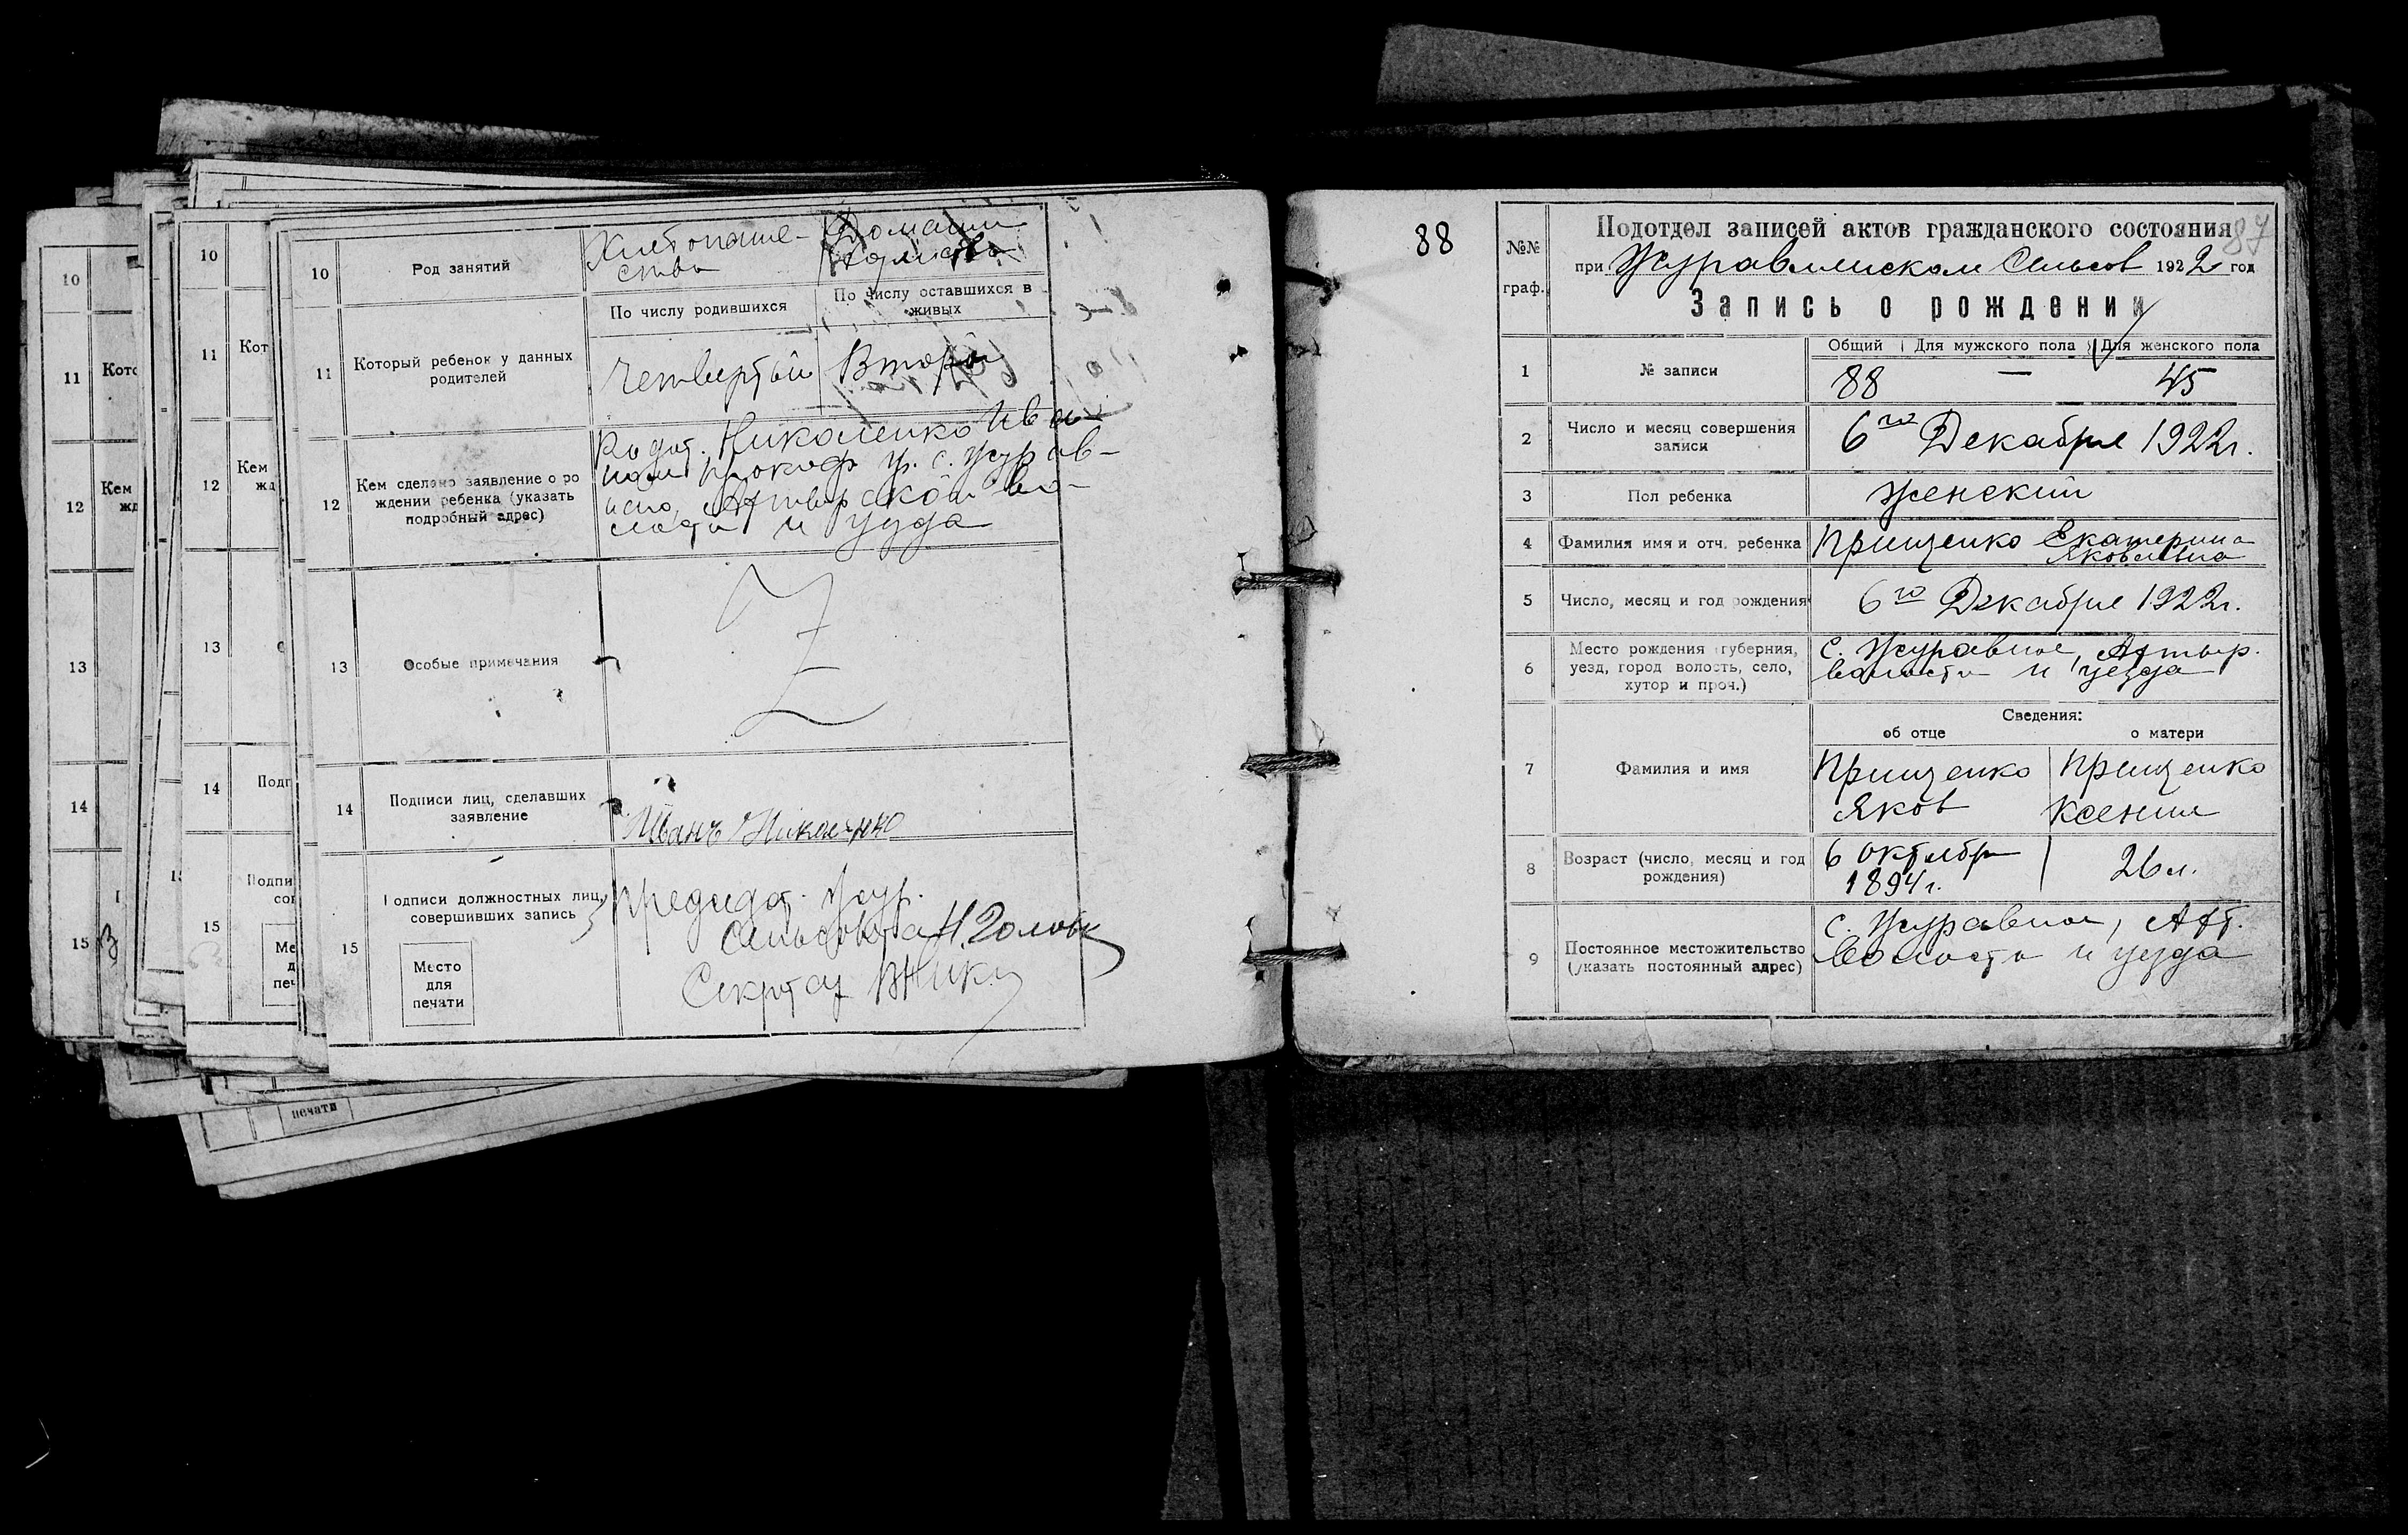 10
11
Кото
12
Кем
жд
13
14
15
10
11
Кот
12
Кем
жд
13
14
Подп
15
Подпи
сов
Ме
д
печ
печати
10
Род занятий
Хлебопаше-
ство
Домашн.
По числу родившихся
По числу оставшихся в
живых
11
Который ребенок у данных
родителей
Четвертый
Второй
12
Кем сделано заявление о ро
ждении ребенка (указать
подробный адрес)
Родот. Николенко Иван
Прокоф гр. с. Журав-
ного, Ахтырской во-
лости и уезда
13
Особые примечания
Z
14
Подписи лиц, сделавших
заявление
Иванъ Николенко
15
Подписи должностных лиц,
совершивших запись
Место
для
печати
Председат. Жур.
Сельсовета Н. Головк
Секретар ВНик
88
87
№№
граф.
Подотдел записей актов гражданского состояния
при Журавлинском Сельсов 1922 год
Запись о рождении
1
№ записи
Общий
Для мужского пола
Для женского пола
88
—
45
2
Число и месяц совершения
записи
6го Декабря 1922г.
3
Пол ребенка
женский
4
Фамилия имя и отч. ребенка
Прищенко Екатерина
Яковлевна
5
Число, месяц и год рождения
6го Декабря 1922г.
6
Место рождения (губерния,
уезд, город волость, село,
хутор и проч.)
с. Журавное, Ахтыр.
волости и уезда
Сведения:
об отце
о матери
7
Фамилия и имя
Прищенко
Яков
Прищенко
Ксения
8
Возраст (число, месяц и год
рождения)
6 октября
1894г.
26 л.
9
Постоянное местожительство
(указать постоянный адрес)
с. Журавное, Ахт.
Волости и уезда